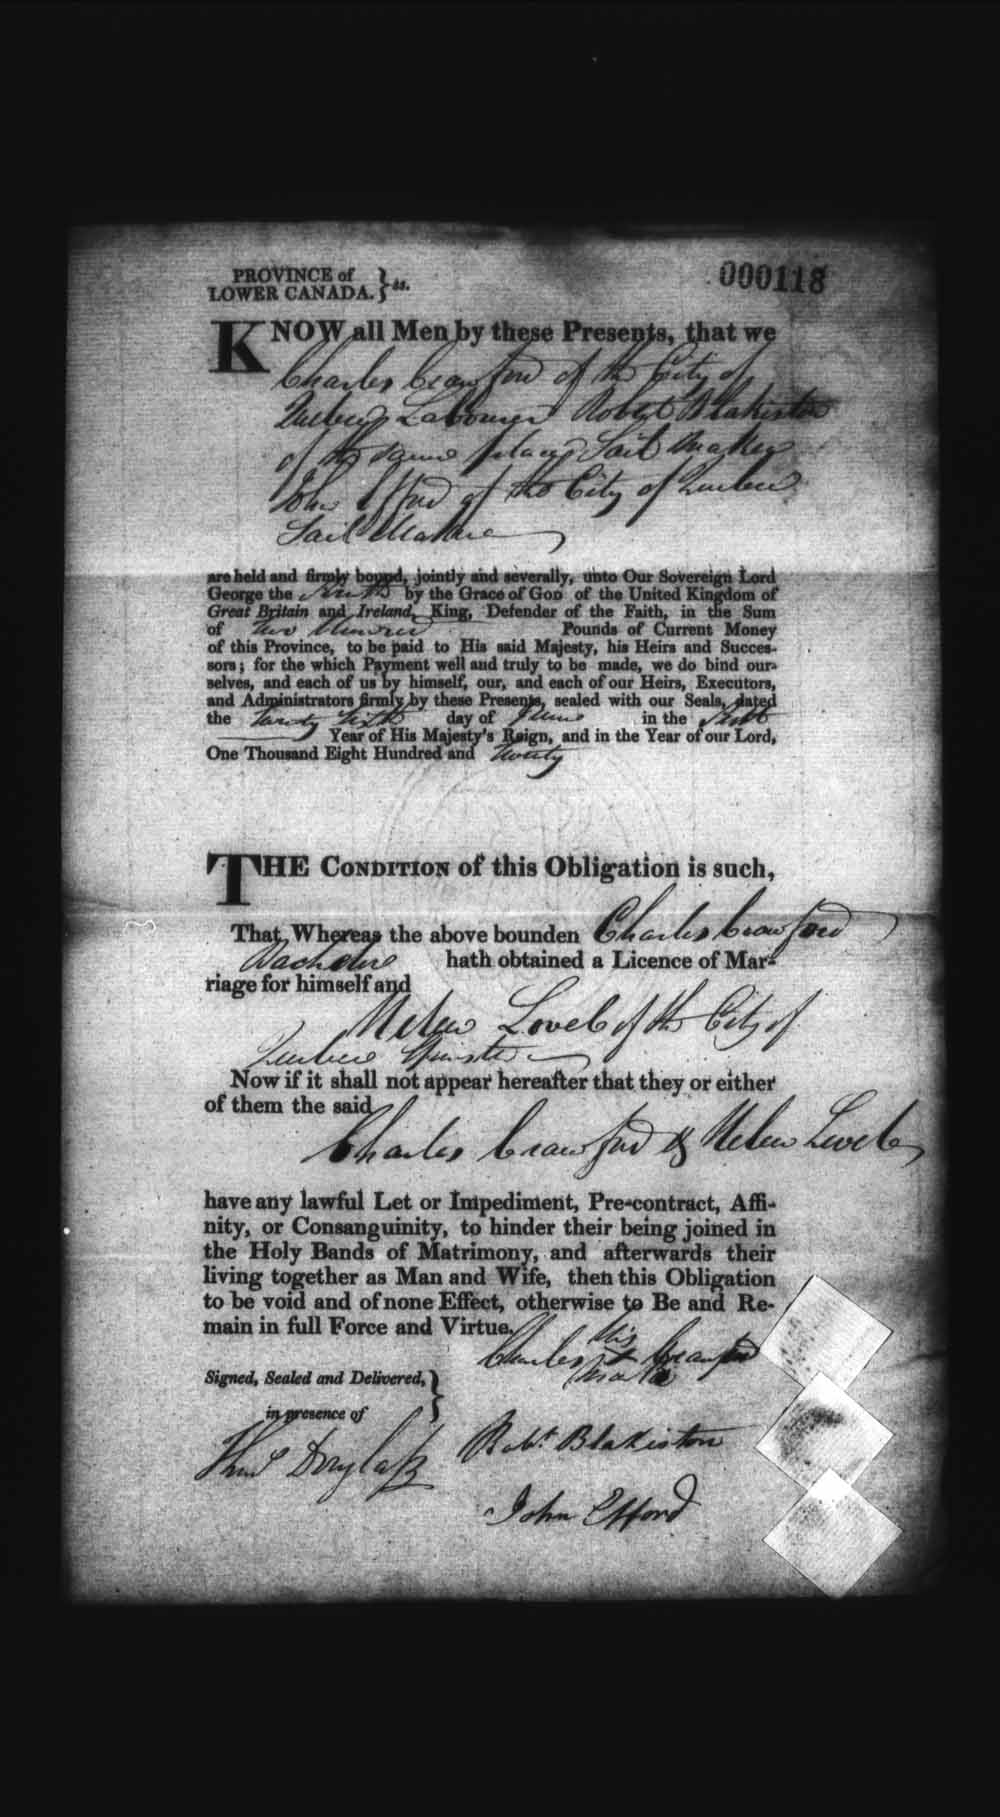 PROVINCE of
LOWER CANADA. } ss.
000118
KNOW all Men by these Presents, that we
Charles Crawford of the City of
Quebec Labourer Robert Blakiston
of the same place Sail Maker
John Efford of the City of Quebec
Sail Maker
are held and firmly bound, jointly and severally, unto Our Sovereign Lord
George the by the Grace of GOD of the United Kingdom of
Great Britain and Ireland, King, Defender of the Faith, in the Sum
of Two Hundred Pounds of Current Money
of this Province, to be paid to His said Majesty, his Heirs and Succes-
sors; for the which Payment well and truly to be made, we do bind our-
selves, and each of us by himself, our, and each of our Heirs, Executors,
and Administrators firmly by these Presents, sealed with our Seals, dated
the Twenty Sixth day of June in the
Year of His Majesty's Reign, and in the Year of our Lord,
One Thousand Eight Hundred and Twenty
THE CONDITION of this Obligation is such,
That Whereas the above bounden Charles Crawford
Bachelor hath obtained a Licence of Mar-
riage for himself and
Helen Lovel of the City of
Quebec Spinster
Now if it shall not appear hereafter that they or either
of them the said
Charles Crawford & Helen Lovel
have any lawful Let or Impediment, Pre-contract, Affi-
nity, or Consanguinity, to hinder their being joined in
the Holy Bands of Matrimony, and afterwards their
living together as Man and Wife, then this Obligation
to be void and of none Effect, otherwise to Be and Re-
main in full Force and Virtue.
his
Charles + Crawford
mark
Signed, Sealed and Delivered, }
in presence of
Robt Blakiston
Douglass
John Efford